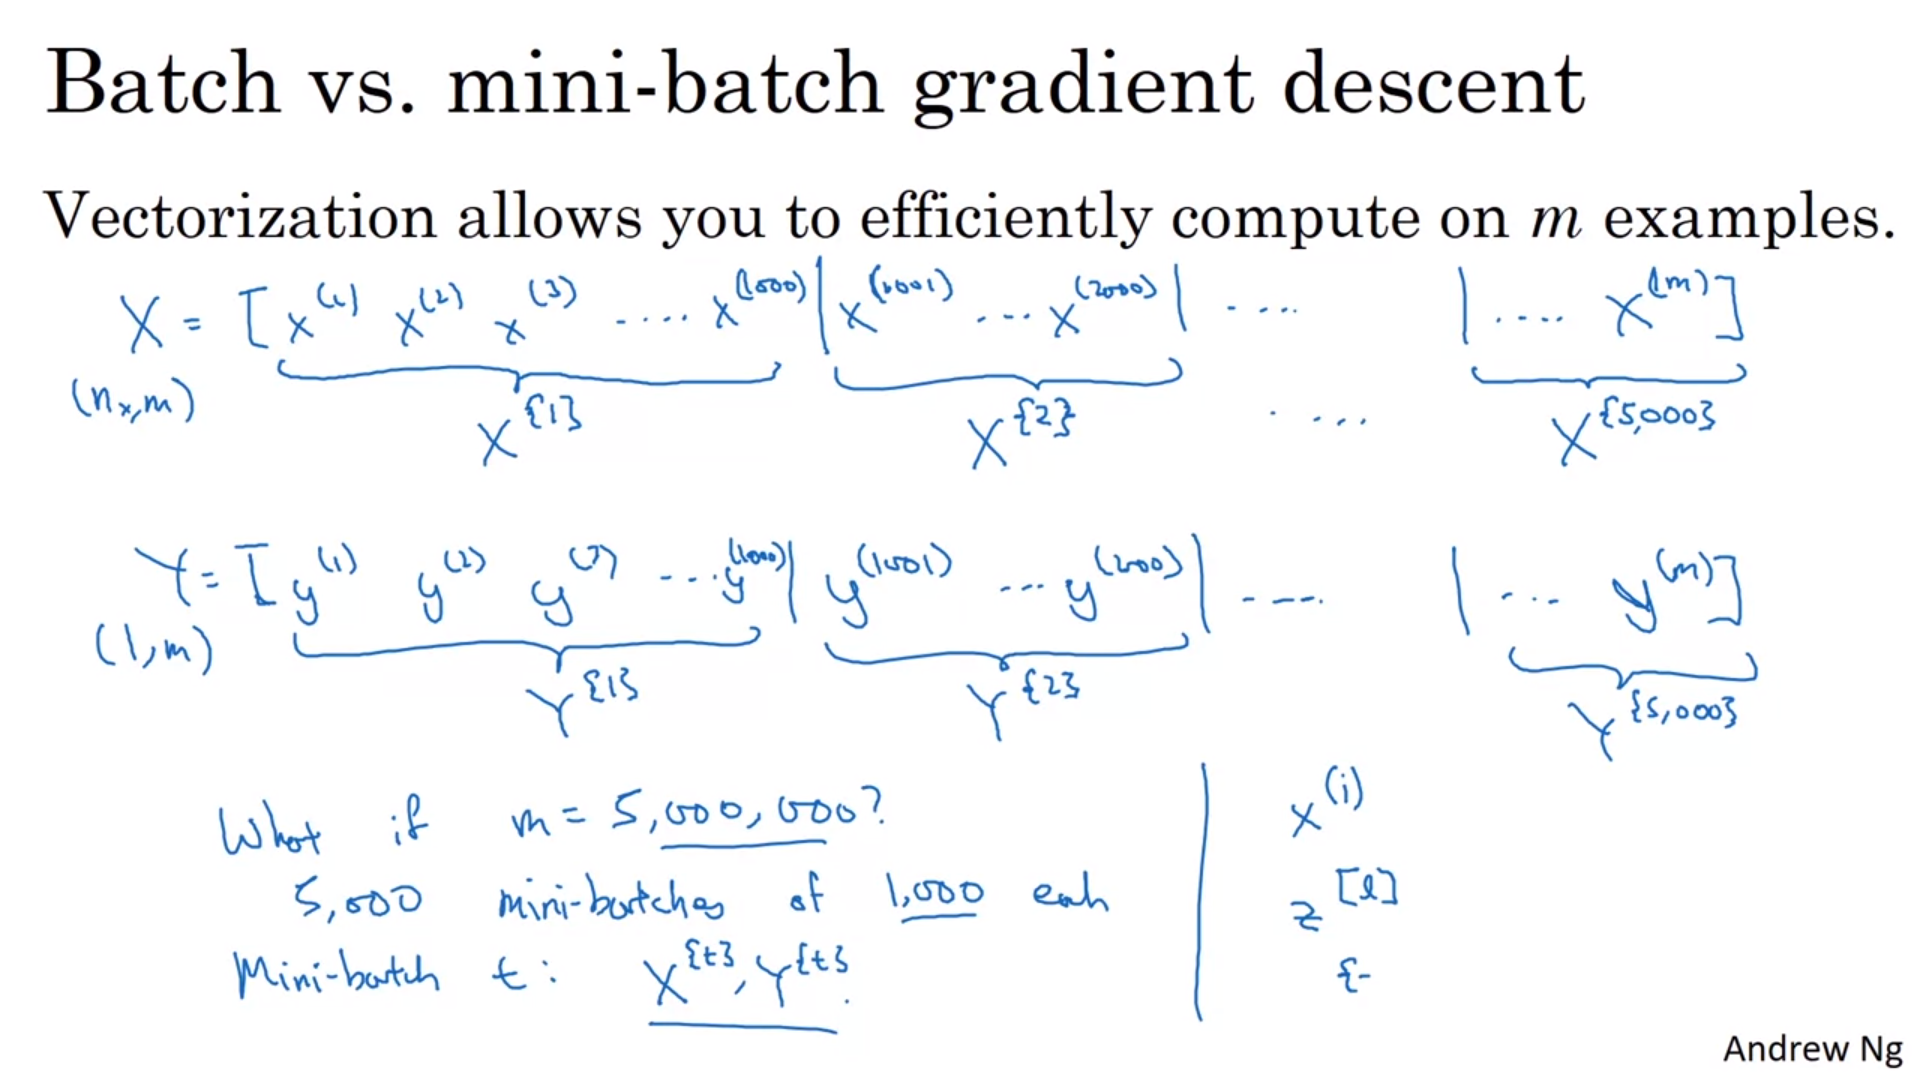 Batch vs. mini-batch gradient descent
Vectorization allows you to efficiently compute on m examples.
X = [ x^(1) x^(2) x^(3) ..... x^(1000) | x^(1001) .... x^(2000) | .... | .... x^(m) ]
(n_x, m)
X^{1} X^{2} .... X^{5,000}
Y = [ y^(1) y^(2) y^(3) ... y^(1000) | y^(1001) ... y^(2000) | ---. | ... y^(m) ]
(1, m)
Y^{1} Y^{2} Y^{5,000}
What if m = 5,000,000?
5,000 mini-batches of 1,000 each
Mini-batch t: X^{t}, Y^{t}.
x^(i)
z^[l]
{-
Andrew Ng